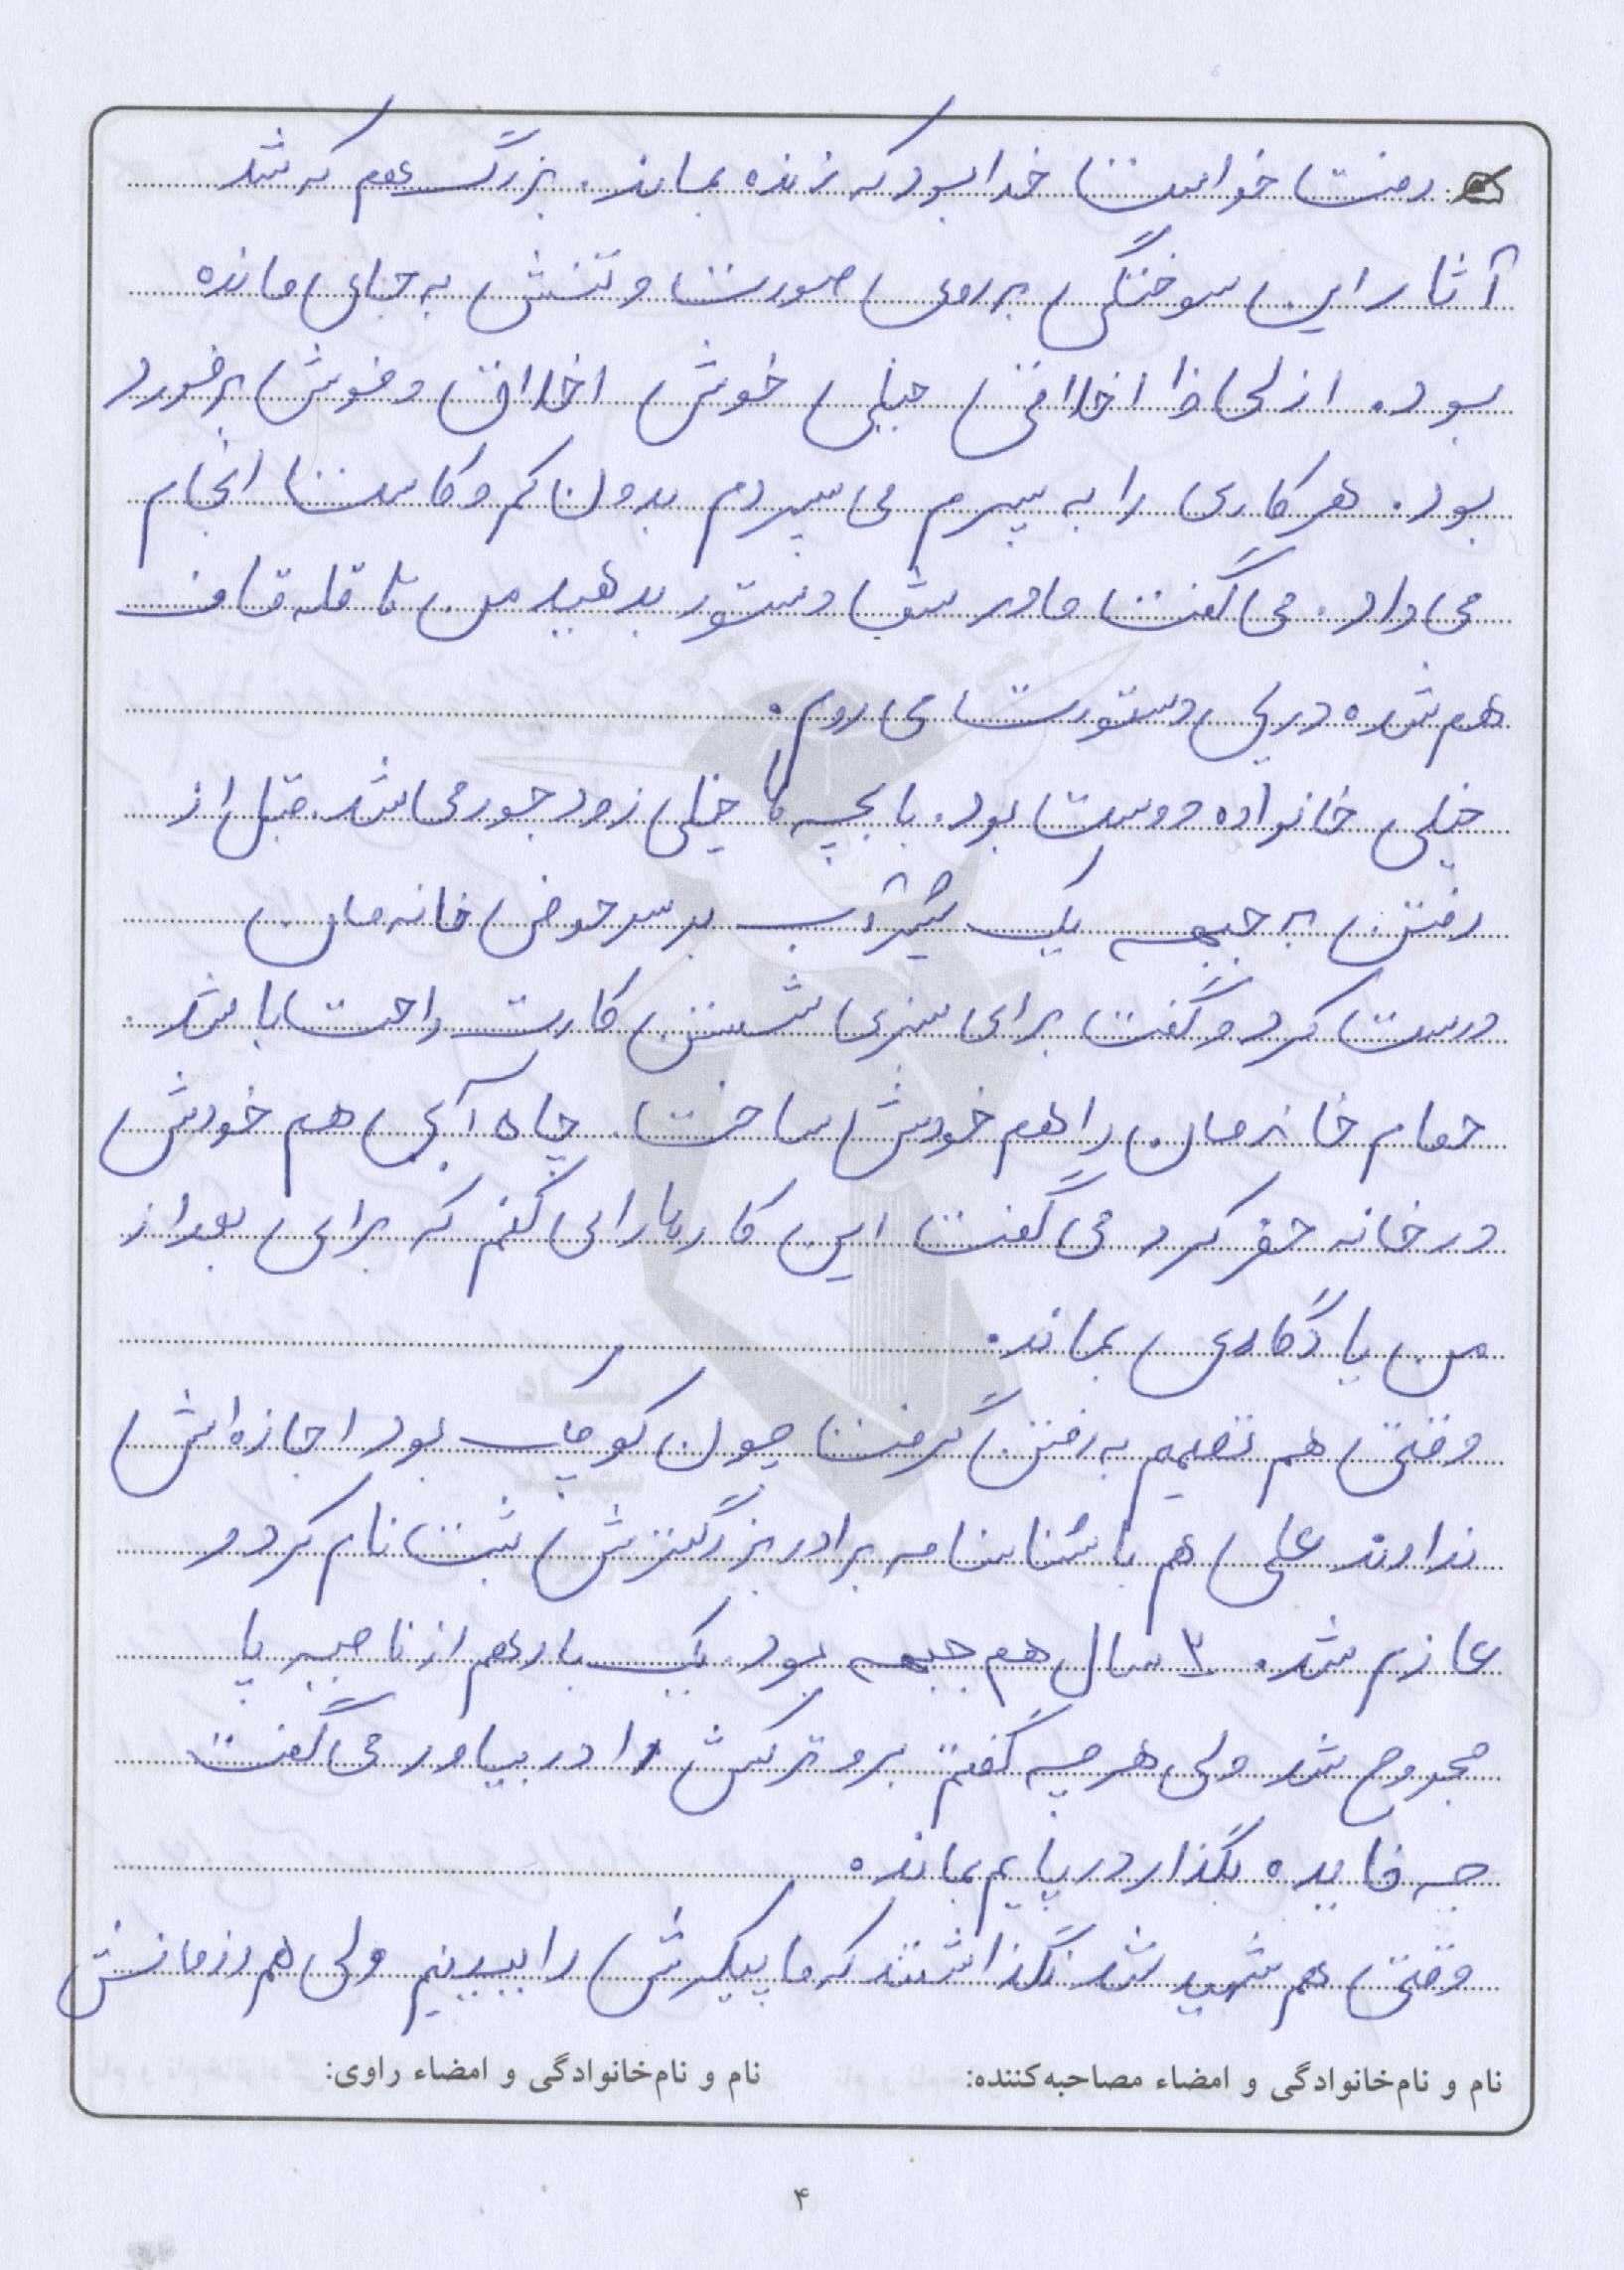 رفت خواست خدا بود که زنده بماند. بزرگ هم که شد
آثار این سوختگی بر روی صورت و تنش به جای مانده
بود. از لحاظ اخلاقی خیلی خوش اخلاق و خوش برخورد
بود. هر کاری را به پسرم می سپردم بدون کم و کاست انجام
می داد. می گفت مادر شما دستور بدهید من تا قله قاف
هم شده در پی دستورت می روم.
خیلی خانواده دوست بود. با بچه ها خیلی زود جور می شد. قبل از
رفتن به جبهه یک شیر آب بر سر حوض خانه مان
درست کرد و گفت برای سبزی شستن کارت راحت باشد.
حمام خانه مان را هم خودش ساخت. چاه آبی هم خودش
در خانه حفر کرد می گفت این کارها را می کنم که برای بعد از
من یادگاری بماند.
وقتی هم تصمیم به رفتن گرفت چون کوچک بود اجازه اش
ندادند علی هم با شناسنامه برادر بزرگترش ثبت نام کرد و
عازم شد. ۳ سال هم جبهه بود. یک بار هم از ناحیه پا
مجروح شد ولی هر چه گفتم برو ترکش را در بیاور می گفت
چه فایده بگذار در پایم بماند.
وقتی هم شهید شد نگذاشتند که ما پیکرش را ببینیم ولی هم رزمانش
نام و نام‌خانوادگی و امضاء مصاحبه‌کننده: نام و نام‌خانوادگی و امضاء راوی:
۴